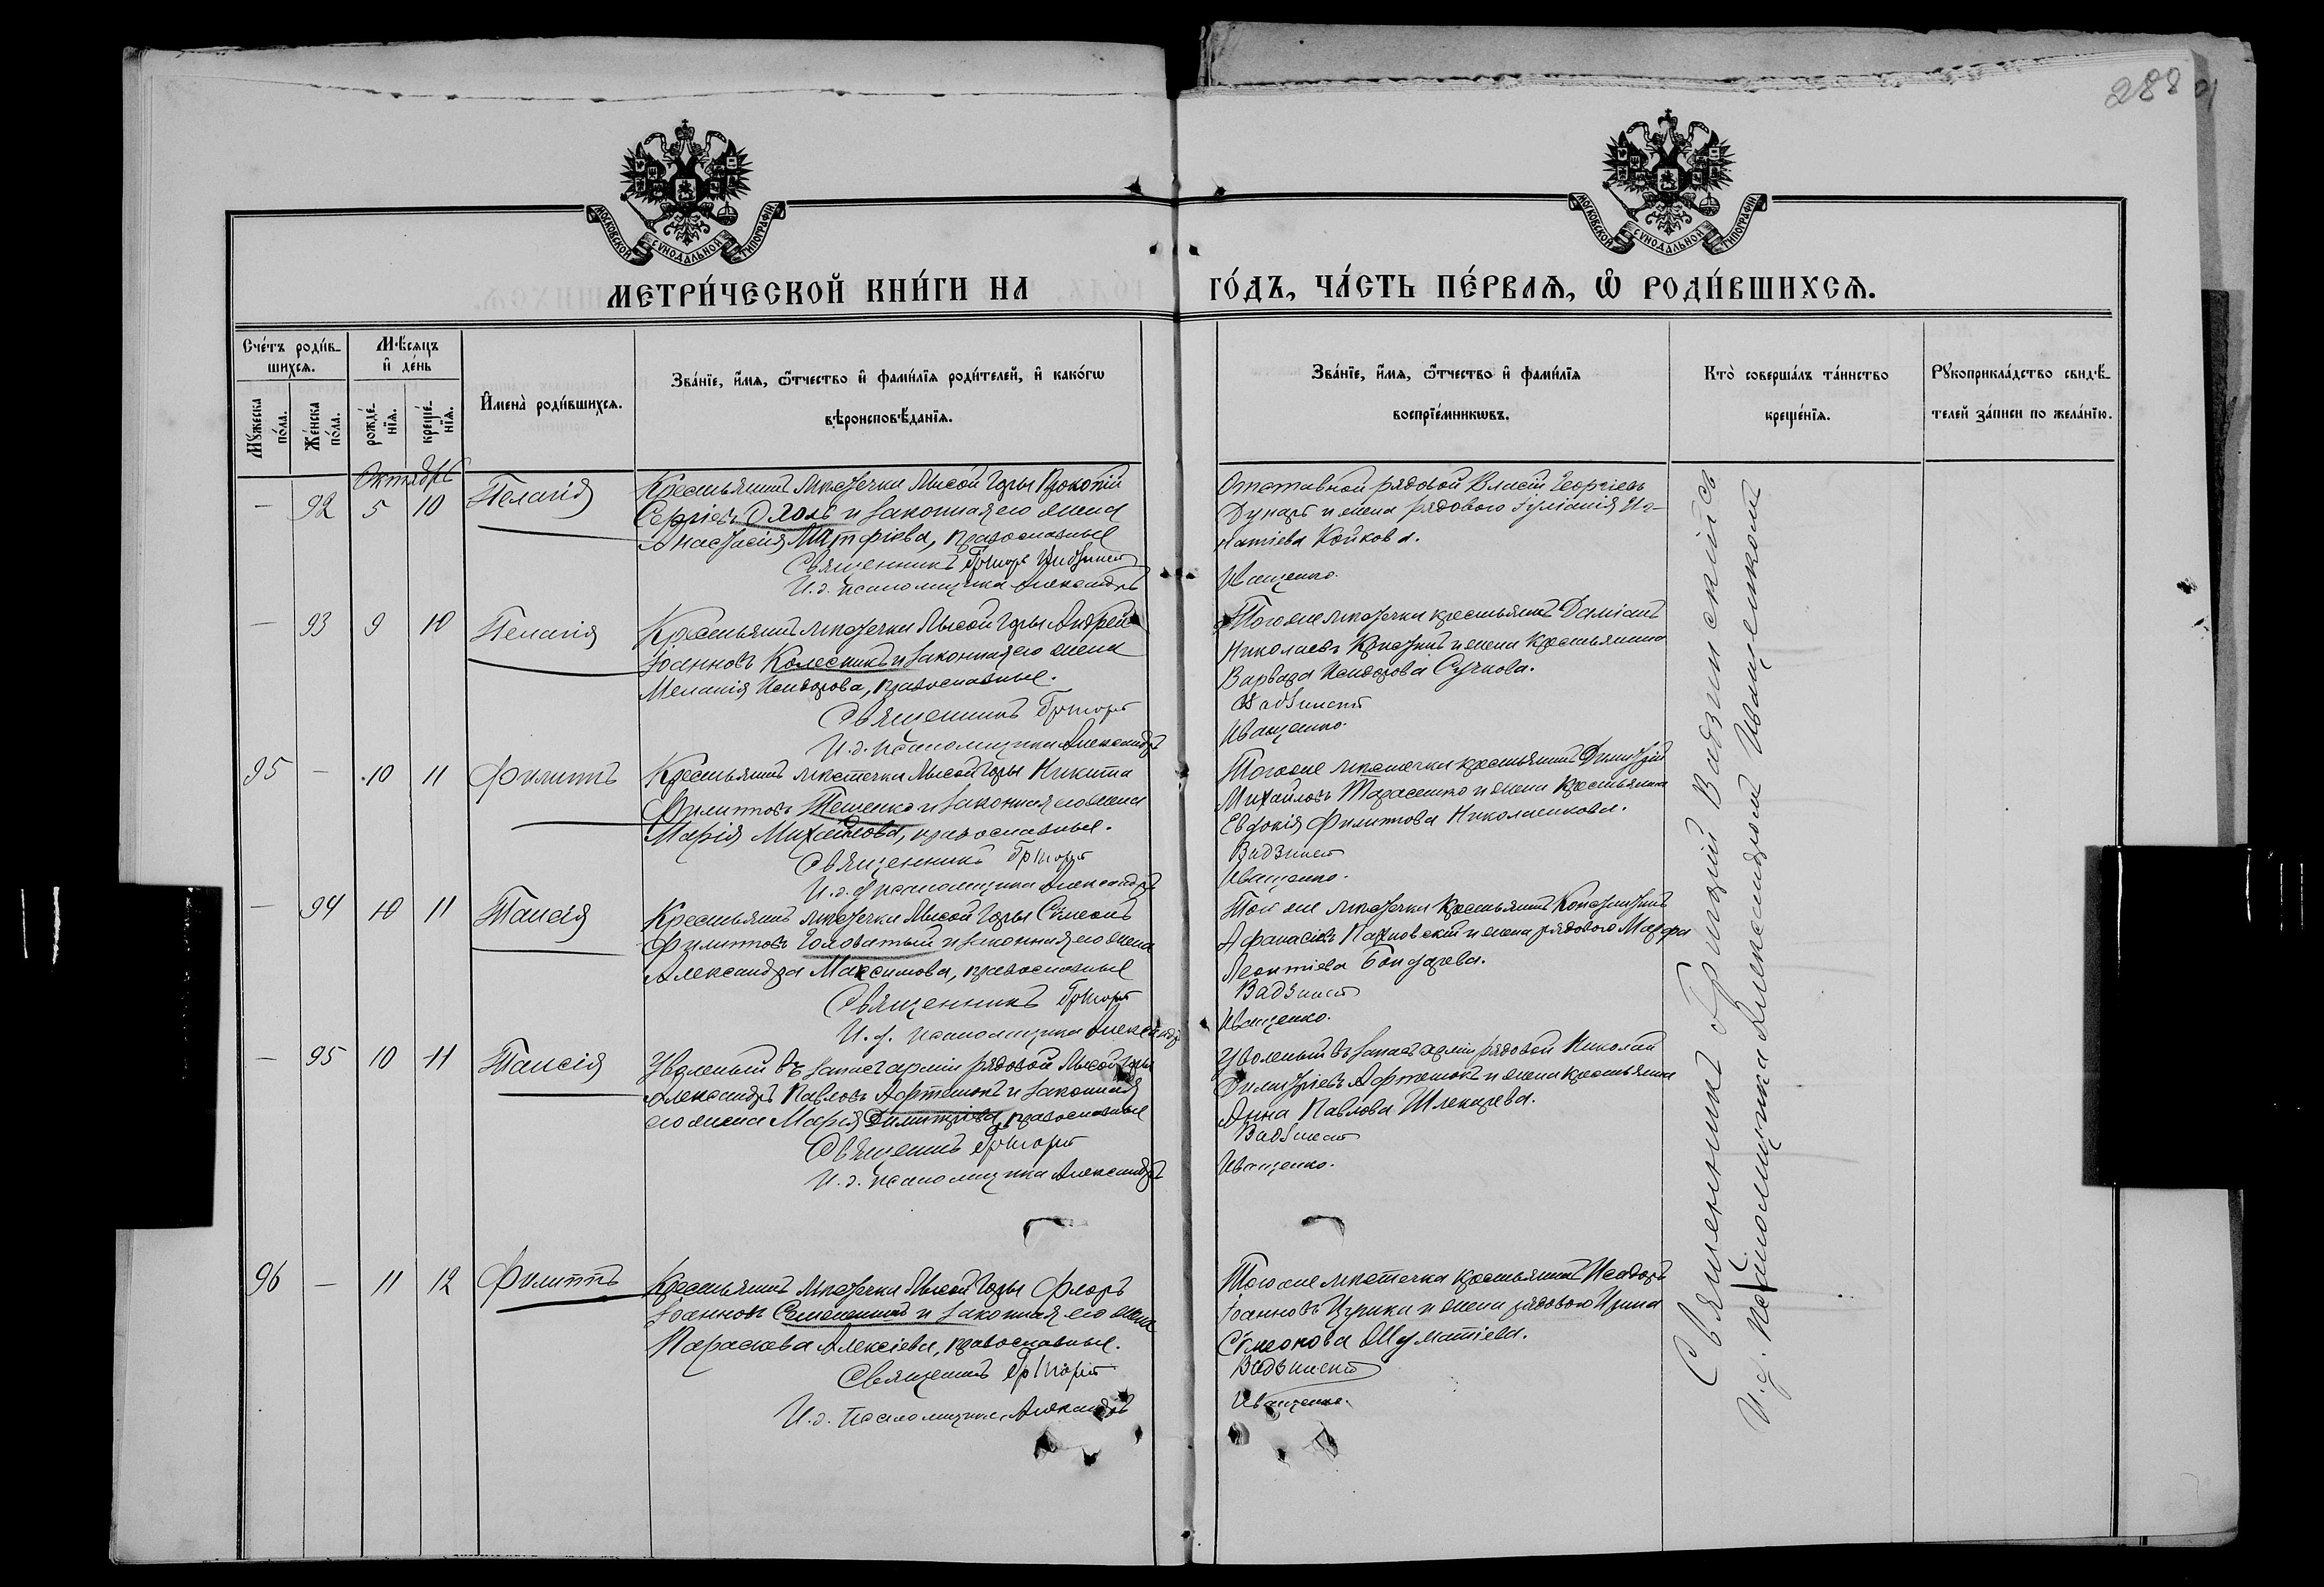 288
МОСКОВСКОЙ СѴНОДАЛЬНОЙ ТИПОГРАФІИ
МОСКОВСКОЙ СѴНОДАЛЬНОЙ ТИПОГРАФІИ
МЕТРИ́ЧЕСКОЙ КНИ́ГИ НА ГО́ДЪ, ЧА́СТЬ ПЕ́РВАѦ, Ѡ҆ РОДИ́ВШИХСѦ.
Сче́тъ роди́в-
шихсѧ.
Мꙋ́жеска по́ла.
Же́нска по́ла.
Мѣ́сѧцъ и҆ де́нь
рожде́-нїѧ.
креще́-нїѧ.
И҆мена̀ роди́вшихсѧ.
Зва́нїе, и҆́мѧ, ѻ҆́тчество и҆ фами́лїѧ роди́телей, и҆ како́гѡ
вѣроисповѣ́данїѧ.
Зва́нїе, и҆́мѧ, ѻ҆́тчество и҆ фами́лїѧ
воспрїе́мникѡвъ.
Кто̀ соверша́лъ та́инство
креще́нїѧ.
Рꙋкоприкла́дство свидѣ́-
телей за́писи по жела́нїю.
Октябрь
— 92 5 10 Пелагія
Крестьянинъ мѣстечка Лысой Горы Прокопій
Сергіевъ и законная его жена
Анастасія, православные
Священникъ Григорій Вадзинскій
И. д. псаломщика Александръ
Отставной рядовой Власій Георгіевъ
и жена рядового Іуліанія Иг-
натіева Койкова.
Иващенко.
— 93 9 10 Пелагія
Крестьянинъ мѣстечка Лысой Горы Андрей
Іоанновъ Колесникъ и законная его жена
Меланія Исидорова, православные.
Священникъ Григорій
И. д. псаломщика Александръ
Того же мѣстечка крестьянинъ Даміанъ
Николаевъ и жена крестьянина
Варвара Исидорова Сучкова.
Вадзинскій
Иващенко.
95 — 10 11 Филиппъ
Крестьянинъ мѣстечка Лысой Горы Никита
Филипповъ Тещенко и законная его жена
Марія Михайлова, православные.
Священникъ Григорій
И. д. псаломщика Александръ
Того же мѣстечка крестьянинъ Димитрій
Михайловъ Тарасенко и жена крестьянина
Евдокія Филиппова Николаенкова.
Вадзинскій
Иващенко.
— 94 10 11 Таисія
Крестьянинъ мѣстечка Лысой Горы Сѵмеонъ
Филипповъ Головатый и законная его жена
Александра Максимова, православные
Священникъ Григорій
И. д. псаломщика Александръ
Той же мѣстечка крестьянинъ Константинъ
Афанасіевъ и жена рядового Марфа
Леонтіева Бондарева.
Вадзинскій
Иващенко.
— 95 10 11 Таисія
Уволеный въ запасъ арміи рядовой Лысой Горы
Александръ Павловъ Афтенюкъ и законная
его жена Марія Димитріева, православные
Священникъ Григорій
И. д. псаломщика Александръ
Уволеный въ запасъ арміи рядовой Николай
Димитріевъ Афтенюкъ и жена крестьянина
Анна Павлова Шлекарева.
Вадзинскій
Иващенко.
96 — 11 12 Филиппъ
Крестьянинъ мѣстечка Лысой Горы Флоръ
Іоанновъ и законная его жена
Параскева Алексіева, православные.
Священникъ Григорій
И. д. псаломщика Александръ
Того же мѣстечка крестьянинъ Исидоръ
Іоанновъ Цурика и жена рядового Ирина
Сѵмеонова
Вадзинскій
Иващенко.
Священникъ Григорій Вадзинскій съ
И. д. псаломщика Александромъ Иващенкомъ